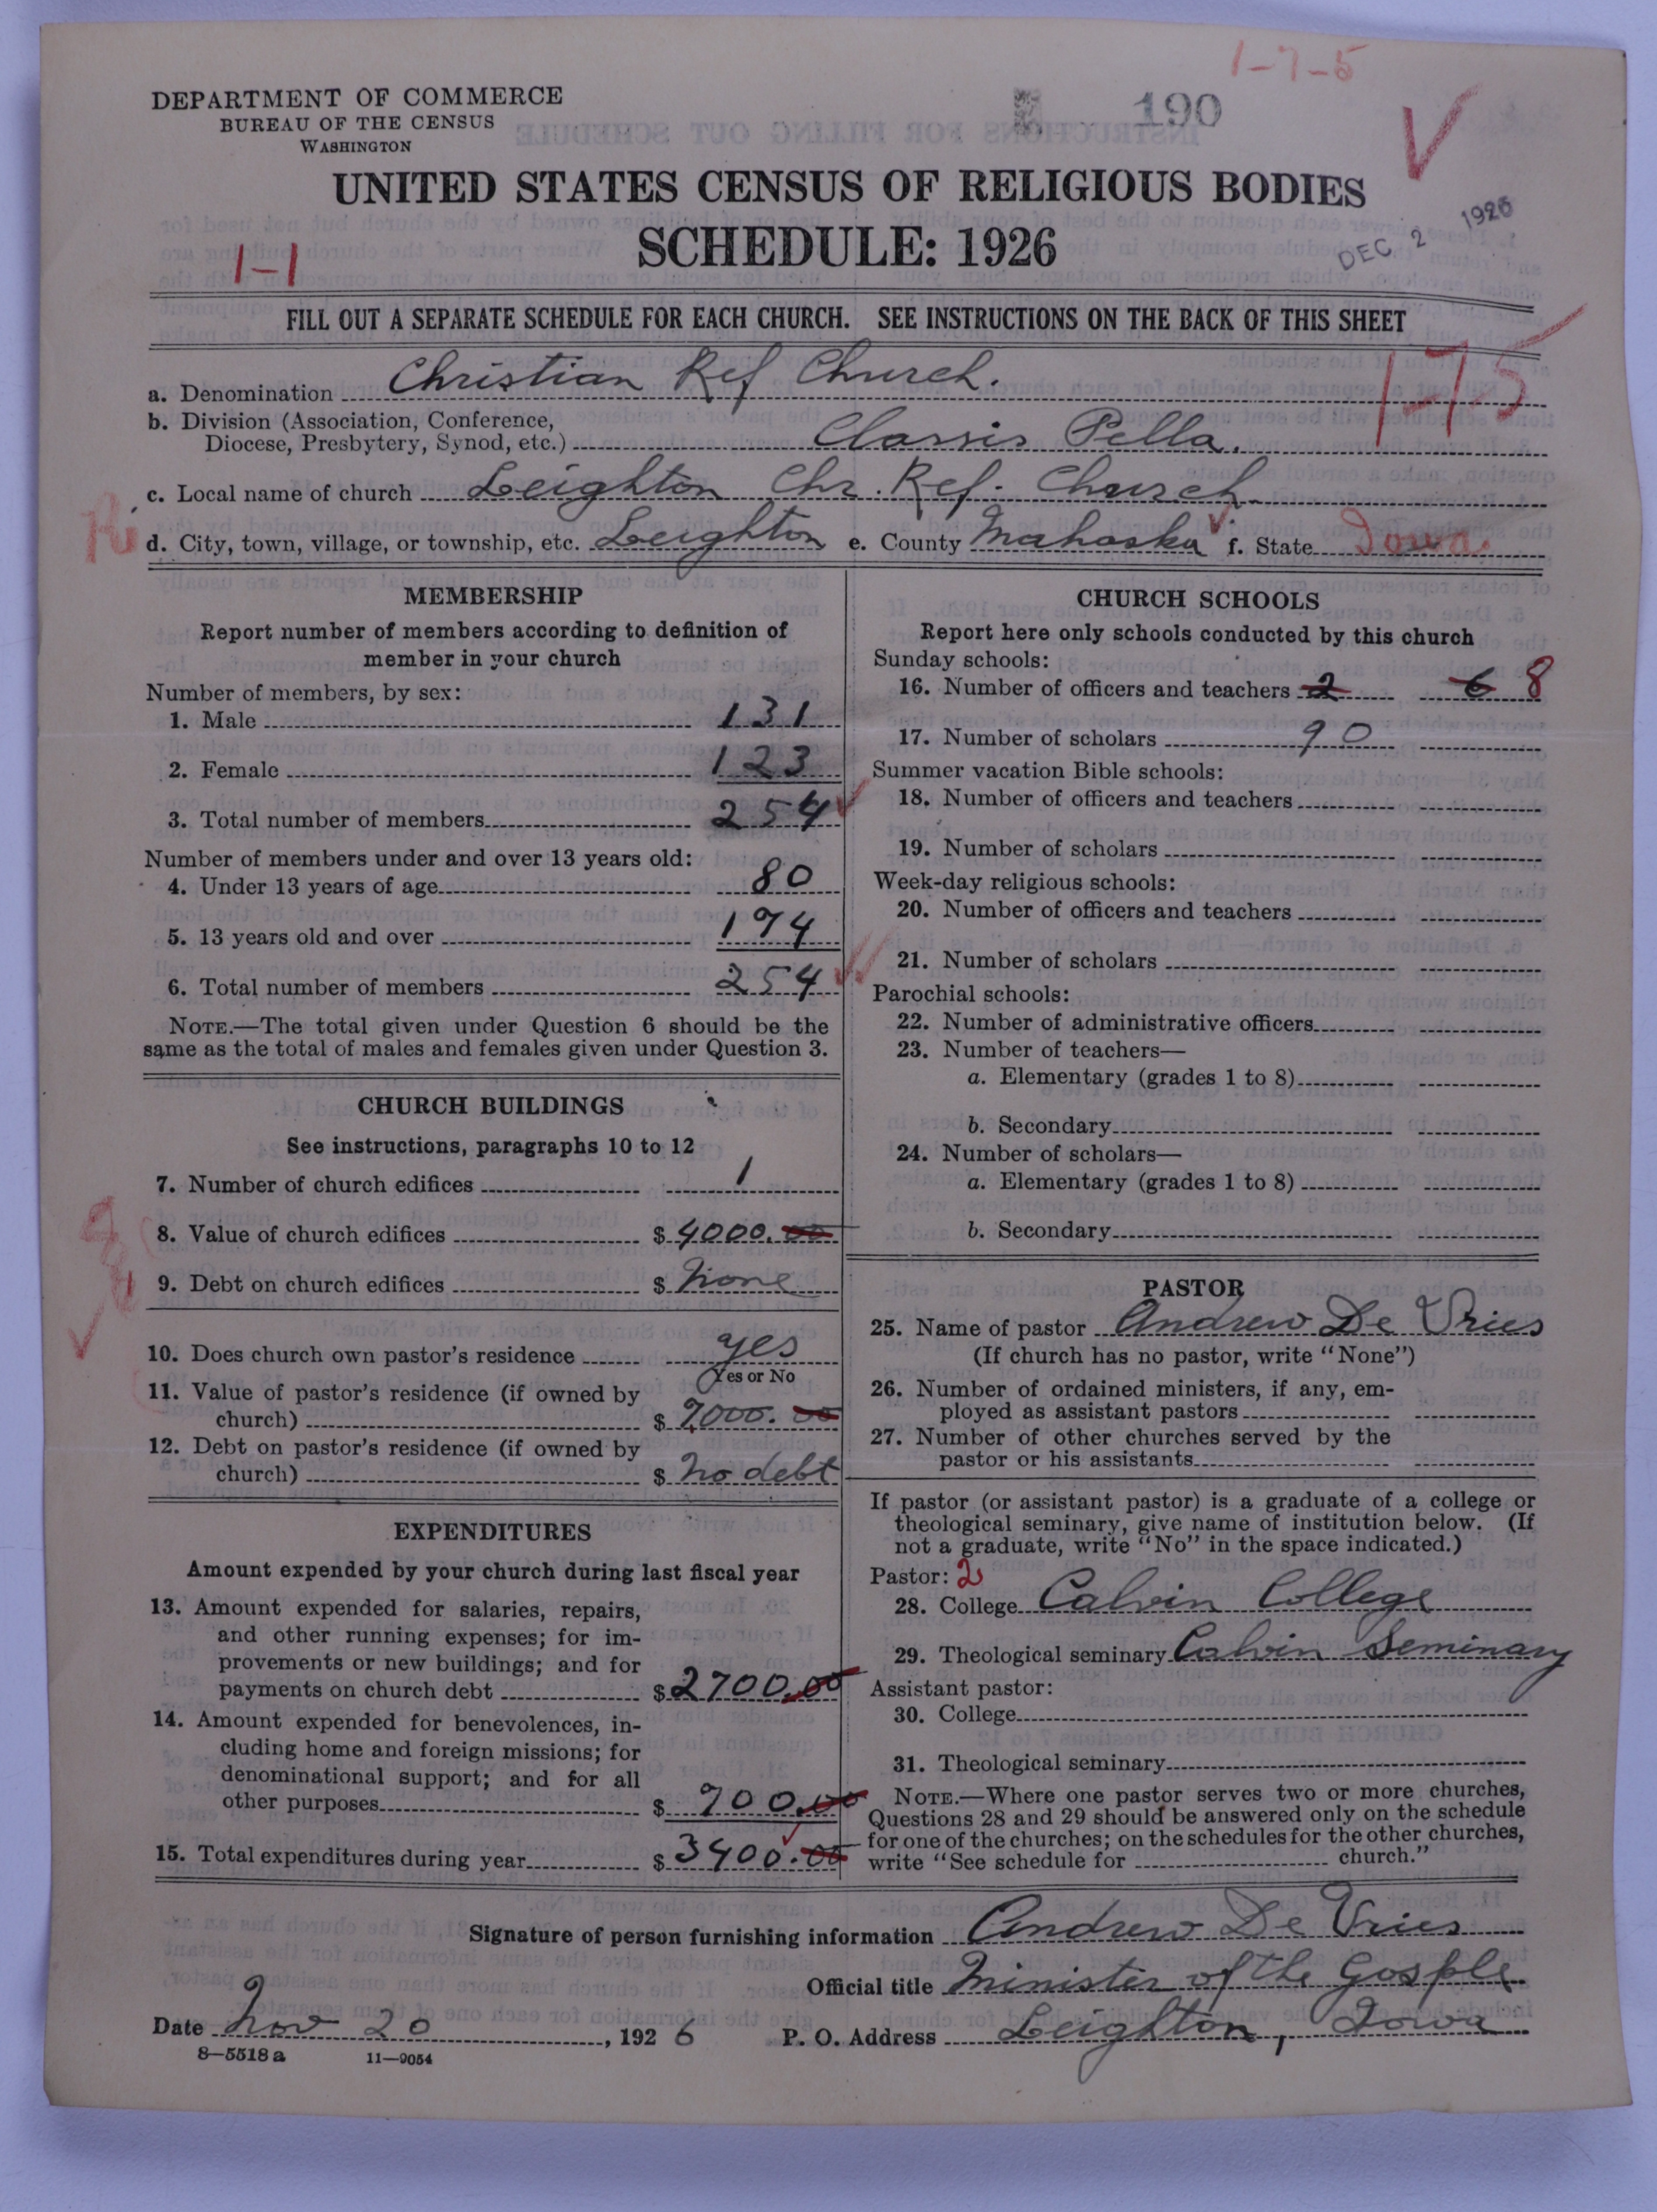 1-7-5
DEPARTMENT OF COMMERCE
BUREAU OF THE CENSUS
WASHINGTON
190
UNITED STATES CENSUS OF RELIGIOUS BODIES
SCHEDULE: 1926
DEC 2 1926
1-1
FILL OUT A SEPARATE SCHEDULE FOR EACH CHURCH. SEE INSTRUCTIONS ON THE BACK OF THIS SHEET
175
a. Denomination Christian Ref Church.
b. Division (Association, Conference,
Diocese, Presbytery, Synod, etc.) Classis Pella.
c. Local name of church Leighton Chr. Ref. Church
d. City, town, village, or township, etc. Leighton e. County Mahaska f. State Iowa.
MEMBERSHIP
Report number of members according to definition of
member in your church
Number of members, by sex:
1. Male 131
2. Female 123
3. Total number of members 254
Number of members under and over 13 years old:
4. Under 13 years of age 80
5. 13 years old and over 174
6. Total number of members 254
NOTE.—The total given under Question 6 should be the
same as the total of males and females given under Question 3.
CHURCH BUILDINGS
See instructions, paragraphs 10 to 12
7. Number of church edifices 1
8. Value of church edifices $ 4000.00
9. Debt on church edifices $ None
10. Does church own pastor's residence yes
Yes or No
11. Value of pastor's residence (if owned by
church) $ 7000.00
12. Debt on pastor's residence (if owned by
church) $ no debt
EXPENDITURES
Amount expended by your church during last fiscal year
13. Amount expended for salaries, repairs,
and other running expenses; for im-
provements or new buildings; and for
payments on church debt $ 2700.00
14. Amount expended for benevolences, in-
cluding home and foreign missions; for
denominational support; and for all
other purposes $ 700.00
15. Total expenditures during year $ 3400.00
CHURCH SCHOOLS
Report here only schools conducted by this church
Sunday schools:
16. Number of officers and teachers 2 6 8
17. Number of scholars 90
Summer vacation Bible schools:
18. Number of officers and teachers
19. Number of scholars
Week-day religious schools:
20. Number of officers and teachers
21. Number of scholars
Parochial schools:
22. Number of administrative officers
23. Number of teachers—
a. Elementary (grades 1 to 8)
b. Secondary
24. Number of scholars—
a. Elementary (grades 1 to 8)
b. Secondary
PASTOR
25. Name of pastor Andrew De Vries
(If church has no pastor, write "None")
26. Number of ordained ministers, if any, em-
ployed as assistant pastors
27. Number of other churches served by the
pastor or his assistants
If pastor (or assistant pastor) is a graduate of a college or
theological seminary, give name of institution below. (If
not a graduate, write "No" in the space indicated.)
Pastor: 2
28. College Calvin College
29. Theological seminary Calvin Seminary
Assistant pastor:
30. College
31. Theological seminary
NOTE.—Where one pastor serves two or more churches,
Questions 28 and 29 should be answered only on the schedule
for one of the churches; on the schedules for the other churches,
write "See schedule for church."
Signature of person furnishing information Andrew De Vries
Official title Minister of the Gosple
Date Nov 20, 1926 P. O. Address Leighton, Iowa
8—5518 a 11—9054